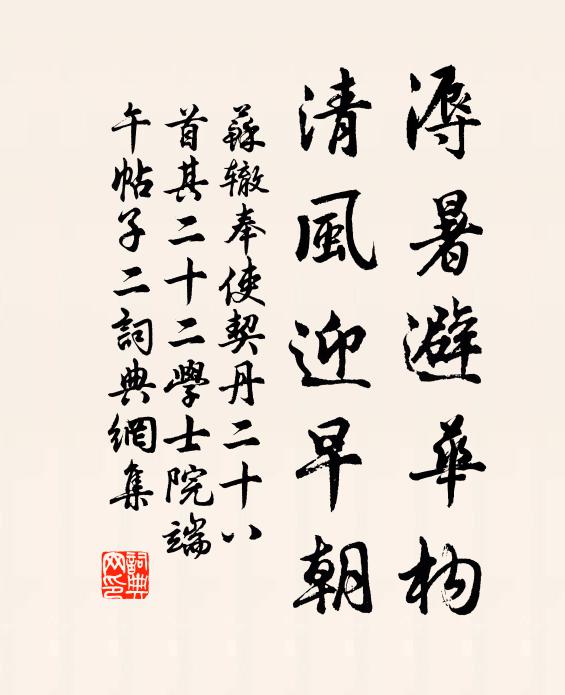 溽暑避華构
清風迎早朝
蘇辙奉使契丹二十八
首其二十二學士院端
午帖子二詞典網集
詞典网印